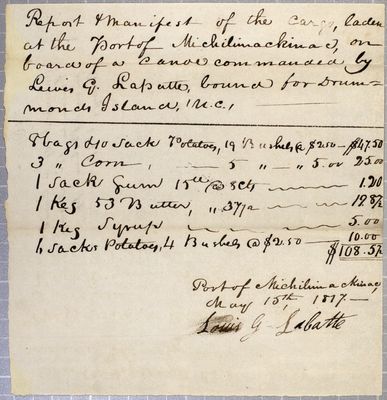 Report & Manifest of the cargo, laden
at the Port of Michilimackinac, on
board of a Canoe commanded by
Lewis G. Labatte, bound for Drum-
monds Island, U.C.,
8 bags & 10 Sack Potatoes, 19 Bushels @ $2.50 — $47.50
3 " Corn, — 5 " " 5.00 25.00
1 Sack Gum 15 lb @ 8 Cts — 1.20
1 Keg 53 Butter, " 37½ — 19.87½
1 Keg Syrup — 5.00
4 Sacks Potatoes, 4 Bushels @ $2.50 — 10.00
$108.57½
Port of Michilimackinac
May 15th, 1817.—
Louis G Labatte